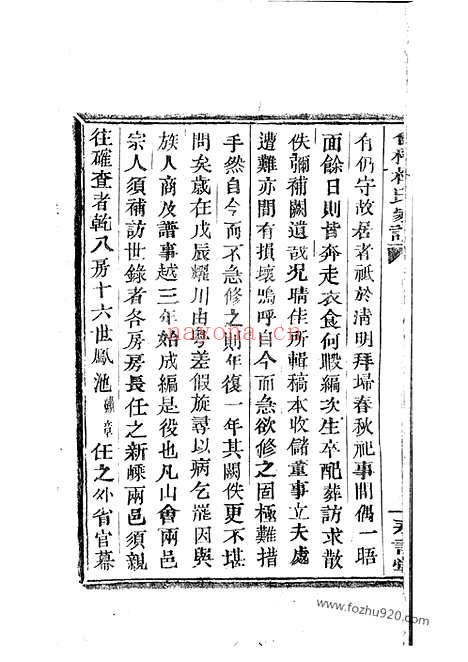 有仍守故居者祇於清明拜埽春秋祀事間偶一晤
面餘日則皆奔走衣食何暇編次生卒配葬訪求散
佚彌補闕遺哉况晴佳所輯稿本收儲董事立夫處
遭難亦間有損壞嗚呼自今而急欲修之固極難措
手然自今而不急修之則年復一年其闕佚更不堪
問矣歲在戊辰耀川由粤差假旋尋以病乞罷因與
族人商及譜事越三年始成編是役也凡山會兩邑
宗人須補訪世錄者各房房長任之新嵊兩邑須親
往確查者乾八房十六世鳳池 任之外省官幕
nayona.cn
www.fozhu920.com